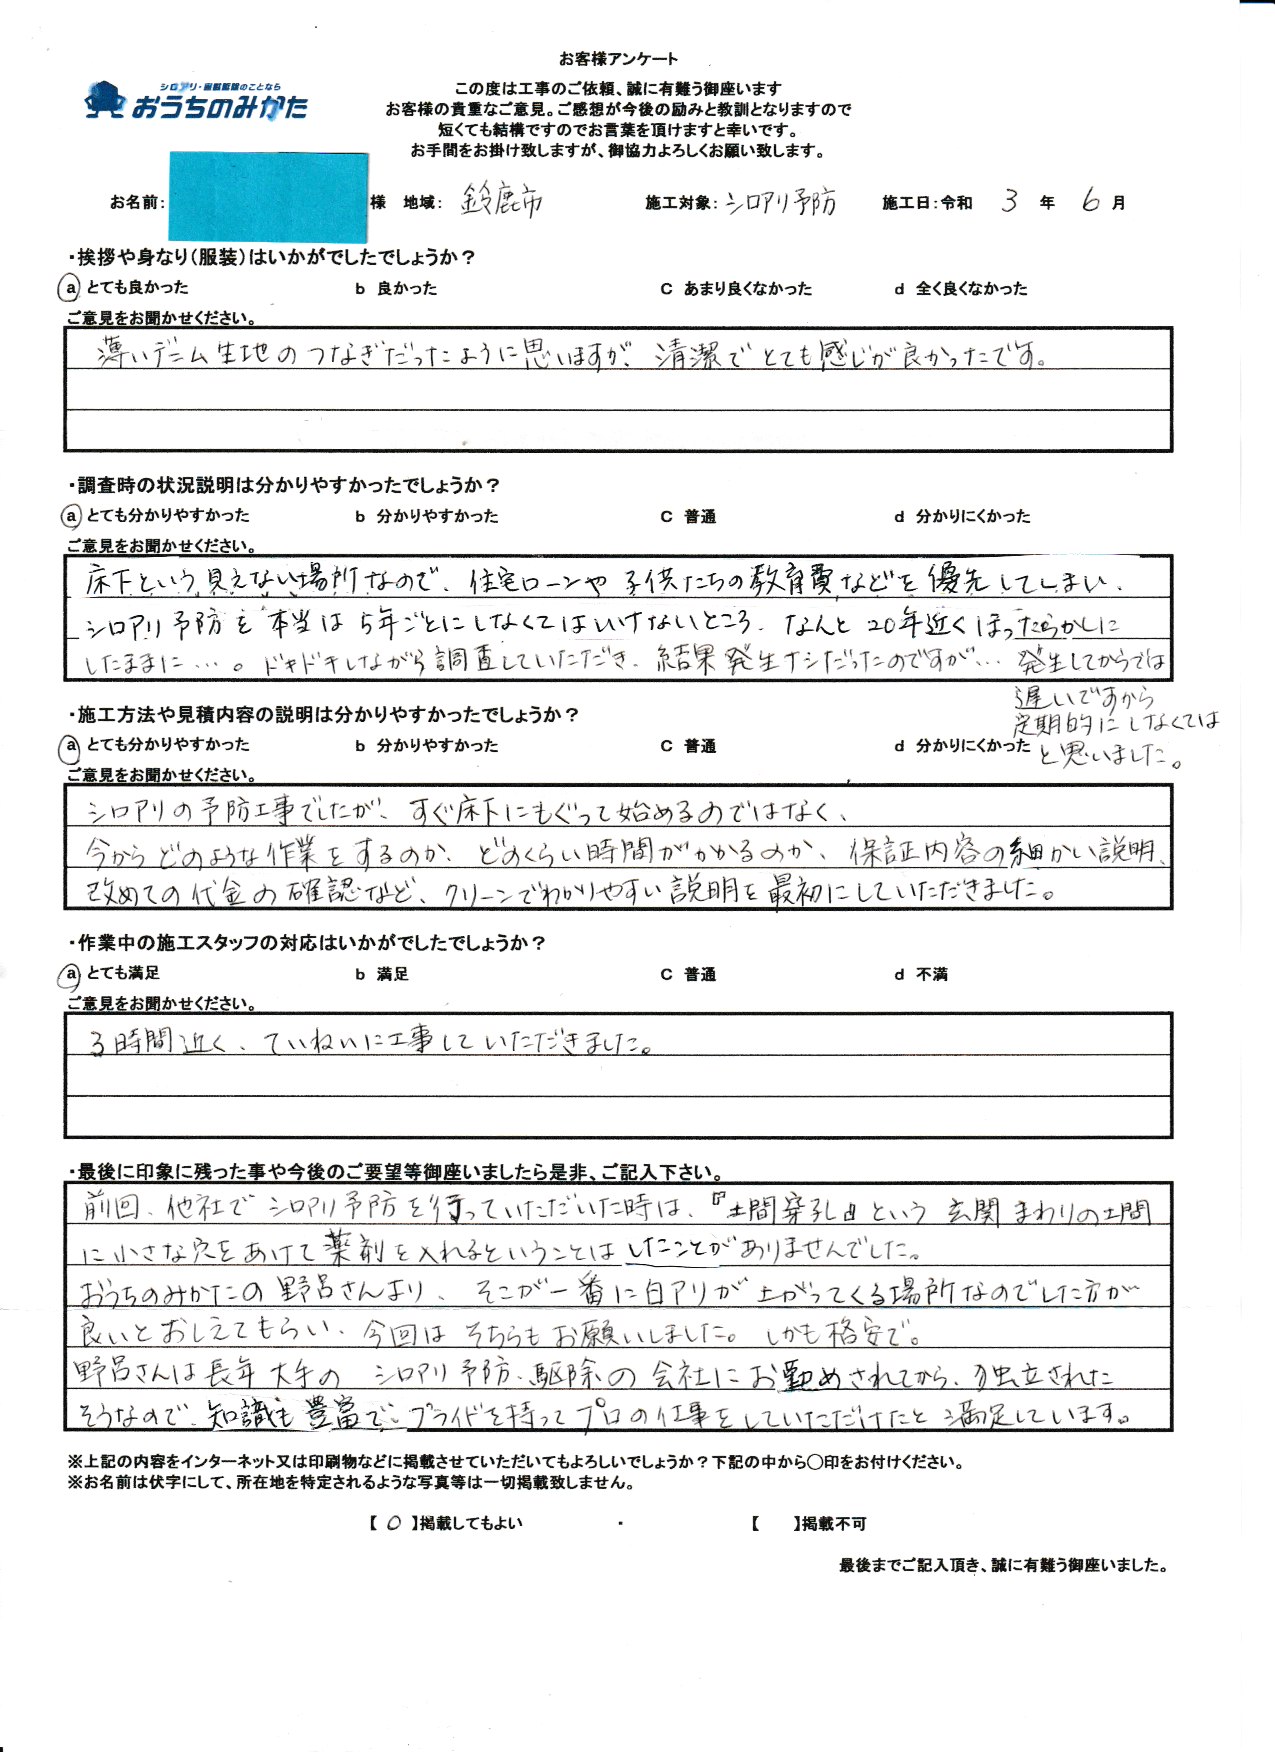 お客様アンケート
シロアリ・害獣駆除のことなら
おうちのみかた
この度は工事のご依頼、誠に有難う御座います
お客様の貴重なご意見。ご感想が今後の励みと教訓となりますので
短くても結構ですのでお言葉を頂けますと幸いです。
お手間をお掛け致しますが、御協力よろしくお願い致します。
お名前： 様 地域： 鈴鹿市 施工対象：シロアリ予防 施工日：令和 3 年 6 月
・挨拶や身なり（服装）はいかがでしたでしょうか？
a とても良かった b 良かった C あまり良くなかった d 全く良くなかった
ご意見をお聞かせください。
薄いデニム生地のつなぎだったように思いますが、清潔でとても感じが良かったです。
・調査時の状況説明は分かりやすかったでしょうか？
a とても分かりやすかった b 分かりやすかった C 普通 d 分かりにくかった
ご意見をお聞かせください。
床下という見えない場所なので、住宅ローンや子供たちの教育費などを優先してしまい、
シロアリ予防を本当は5年ごとにしなくてはいけないところ、なんと20年近くほったらかしに
したままに…。ドキドキしながら調査していただき、結果発生ナシだったのですが…発生してからでは
遅いですから
定期的にしなくては
と思いました。
・施工方法や見積内容の説明は分かりやすかったでしょうか？
a とても分かりやすかった b 分かりやすかった C 普通 d 分かりにくかった
ご意見をお聞かせください。
シロアリの予防工事でしたが、すぐ床下にもぐって始めるのではなく、
今からどのような作業をするのか、どのくらい時間がかかるのか、保証内容の細かい説明、
改めての代金の確認など、クリーンでわかりやすい説明を最初にしていただきました。
・作業中の施工スタッフの対応はいかがでしたでしょうか？
a とても満足 b 満足 C 普通 d 不満
ご意見をお聞かせください。
3時間近く、ていねいに工事していただきました。
・最後に印象に残った事や今後のご要望等御座いましたら是非、ご記入下さい。
前回、他社でシロアリ予防を行っていただいた時は、『土間穿孔』という玄関まわりの土間
に小さな穴をあけて薬剤を入れるということはしたことがありませんでした。
おうちのみかたの野呂さんより、そこが一番に白アリが上がってくる場所なのでした方が
良いとおしえてもらい、今回はそちらもお願いしました。しかも格安で。
野呂さんは長年大手のシロアリ予防、駆除の会社にお勤めされてから、独立された
そうなので、知識も豊富で、プライドを持ってプロの仕事をしていただけたと満足しています。
※上記の内容をインターネット又は印刷物などに掲載させていただいてもよろしいでしょうか？下記の中から〇印をお付けください。
※お名前は伏字にして、所在地を特定されるような写真等は一切掲載致しません。
【 〇 】掲載してもよい ・ 【 】掲載不可
最後までご記入頂き、誠に有難う御座いました。